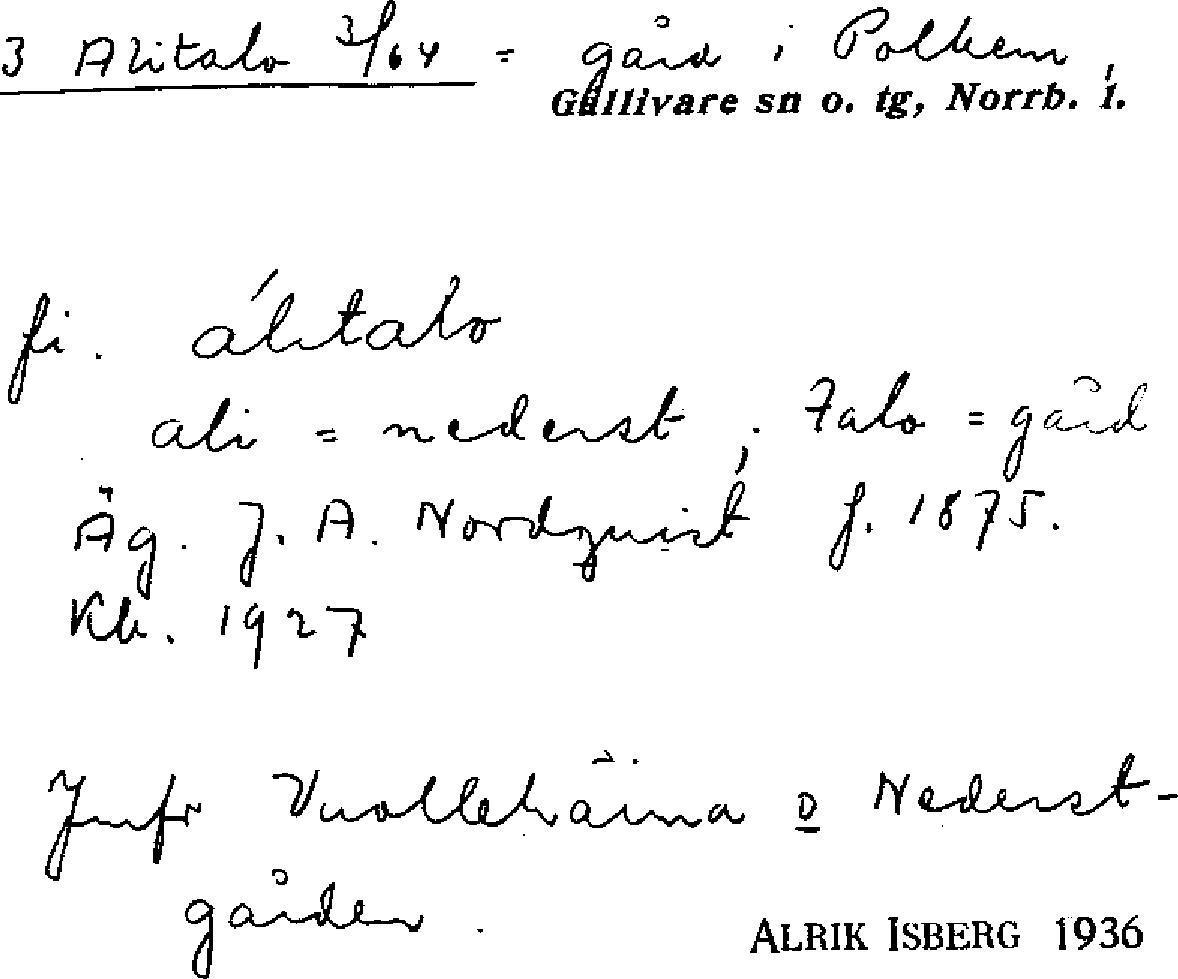 3 Alitalo 3/64 = gård i Polkem,
Gällivare sn o. tg, Norrb. l.
fi. álitalo
ali = nederst; Talo = gård
Äg. J. A. Nordquist f. 1875.
Kb. 1927
Jmfr o Nederst-
gården.
ALRIK ISBERG 1936